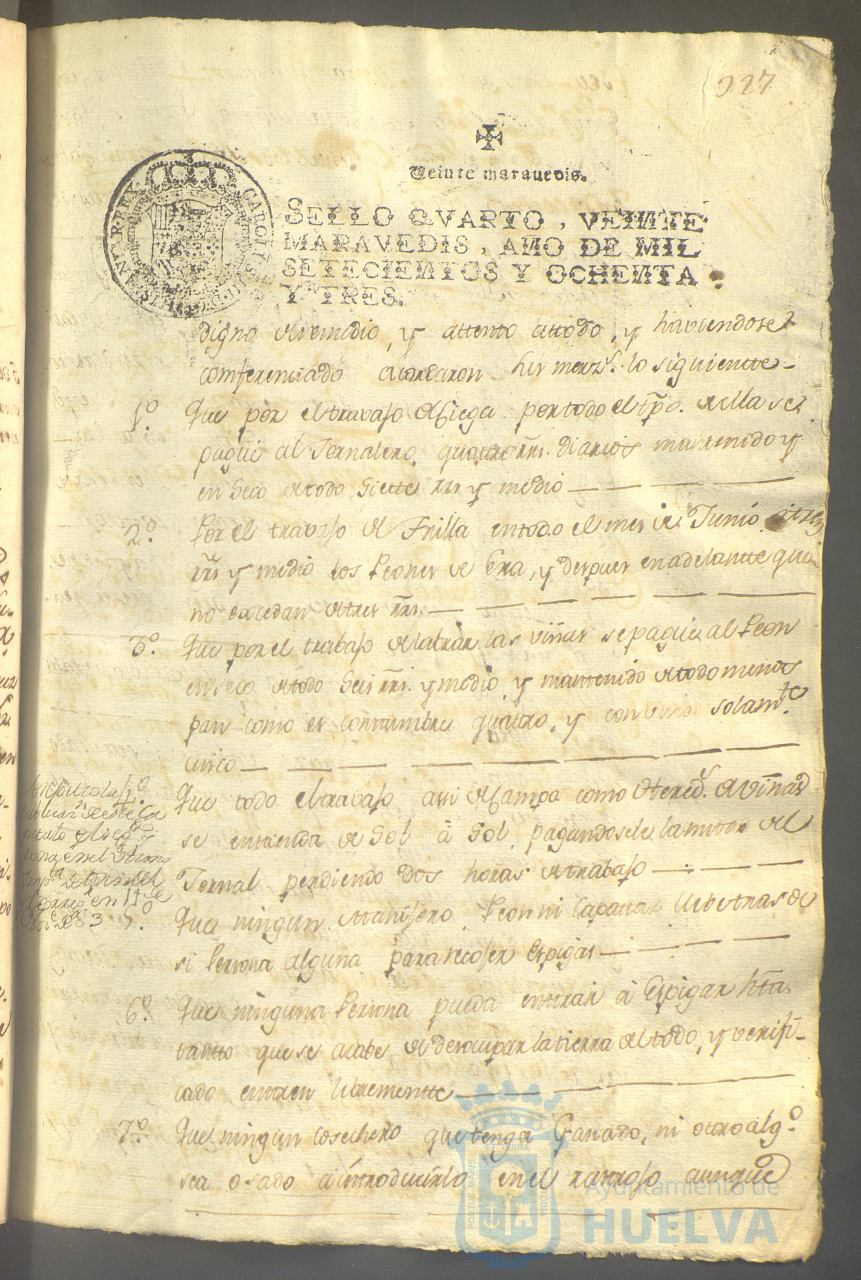 227
Veinte marauedis.
SELLO QVARTO, VEINTE
MARAVEDIS, AÑO DE MIL
SETECIENTOS Y OCHENTA
Y TRES.
CAROLUS III D G HISPANIAR REX
digno de remedio, y attento attodo, y haviendose
comferenciado acordaron sus merzs. lo siguiente
1º. Que por el travajo de Siega por todo el tpo. de ella se
pague al Jornalero quattro rrs. diarios mantenido y
en seco de todo Siette rrs y medio
2º. Por el travajo de Trilla en todo el mes de Junio a tres
rrs y medio los Peones de Era, y despues en adelantte que
no excedan de tres rrs.
3º. Que por el trabajo de labrar las viñas se pague al Peon
en seco de todo Seis rrs. y medio, y mantenido de todo menos
pan como es conttumbre quatro, y con vino solamte.
cinco
4º. Que todo el travajo assi de Campo como de viñas
se entienda de Sol â Sol, pagandosele la mitad del
Jornal perdiendo dos horas de trabajo
5º. Que ningun Manijero Peon ni Capataz lleve tras de
si Persona alguna para recojer Espigas
6º. Que ninguna Persona pueda entrar â Espigar hta.
tantto que se acabe de desocupar la tierra del todo, y verifi-
cado entren libremente
7º. Que ningun cosechero que tenga Ganado, ni otro algº.
sea osado â introducirlo en el rastrojo aunque
Ayuntamiento de
HUELVA